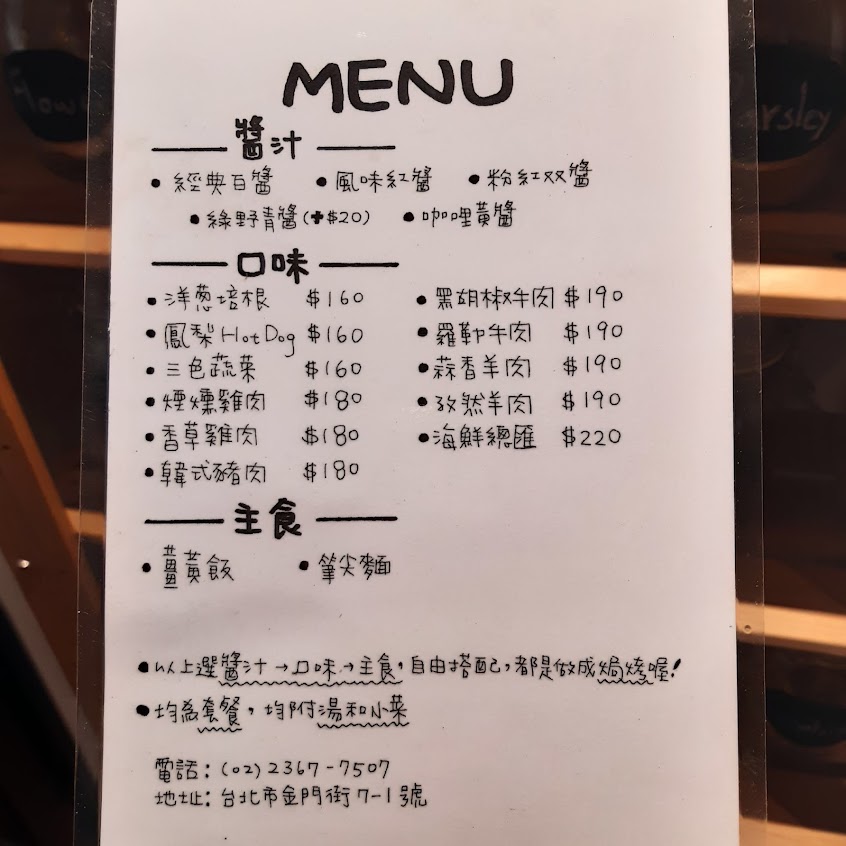 MENU
醬汁
• 經典白醬 • 風味紅醬 • 粉紅双醬
• 綠野青醬(+$20) • 咖哩黃醬
口味
• 洋蔥培根 $160 • 黑胡椒牛肉 $190
• 鳳梨HotDog $160 • 羅勒牛肉 $190
• 三色蔬菜 $160 • 蒜香羊肉 $190
• 煙燻雞肉 $180 • 孜然羊肉 $190
• 香草雞肉 $180 • 海鮮總匯 $220
• 韓式豬肉 $180
主食
• 薑黃飯 • 筆尖麵
• 以上選醬汁→口味→主食,自由搭配,都是做成焗烤喔!
• 均為套餐,均附湯和小菜
電話:(02)2367-7507
地址:台北市金門街7-1號